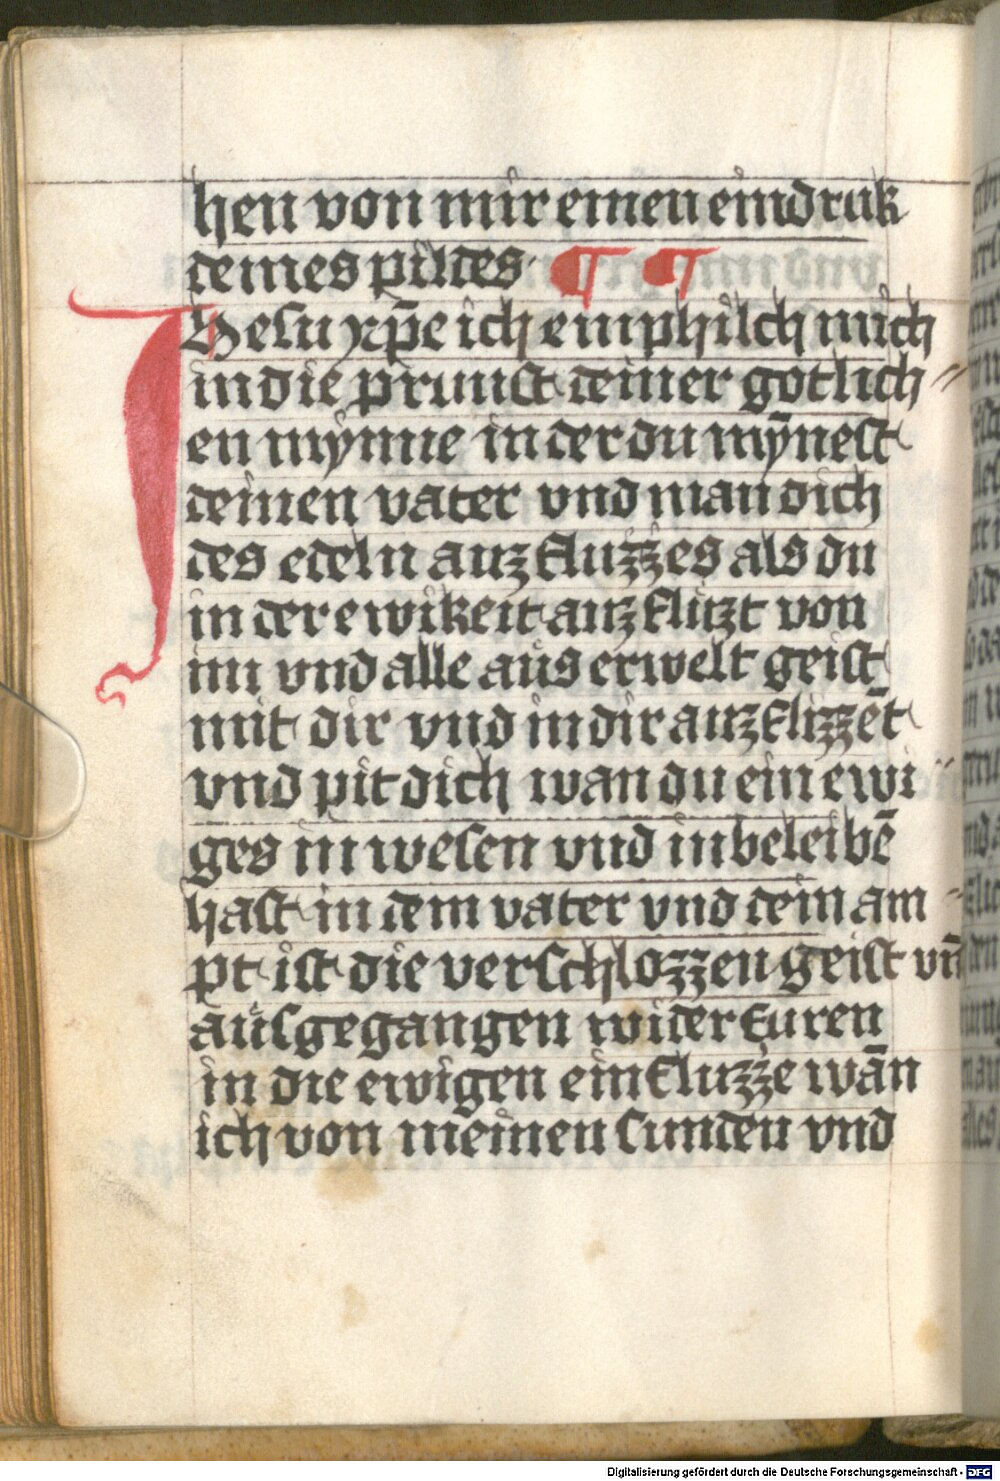 hen von mir einen eindruk
deines pildes · ¶ ¶
Jhesu xp̄e ich emphilch mich
in die prunst deiner gotlich //
en mynne in der du mȳnest
deinen vater vnd man dich
des edeln auzfluzzes als du
in der ewikeit auzfluzt von
im vnd alle aus erwelt geist
mit dir vnd in dir auzflizzēt
vnd pit dich wan du ein ewi //
ges in wesen vnd inbeleibē
hast in dem vater vnd dein am //
pt ist die verschlozzen geist vn̄
ausgegangen widerfuren
in die ewigen einfluzze wān
ich von meinen sunden vnd
Digitalisierung gefördert durch die Deutsche Forschungsgemeinschaft - DFG